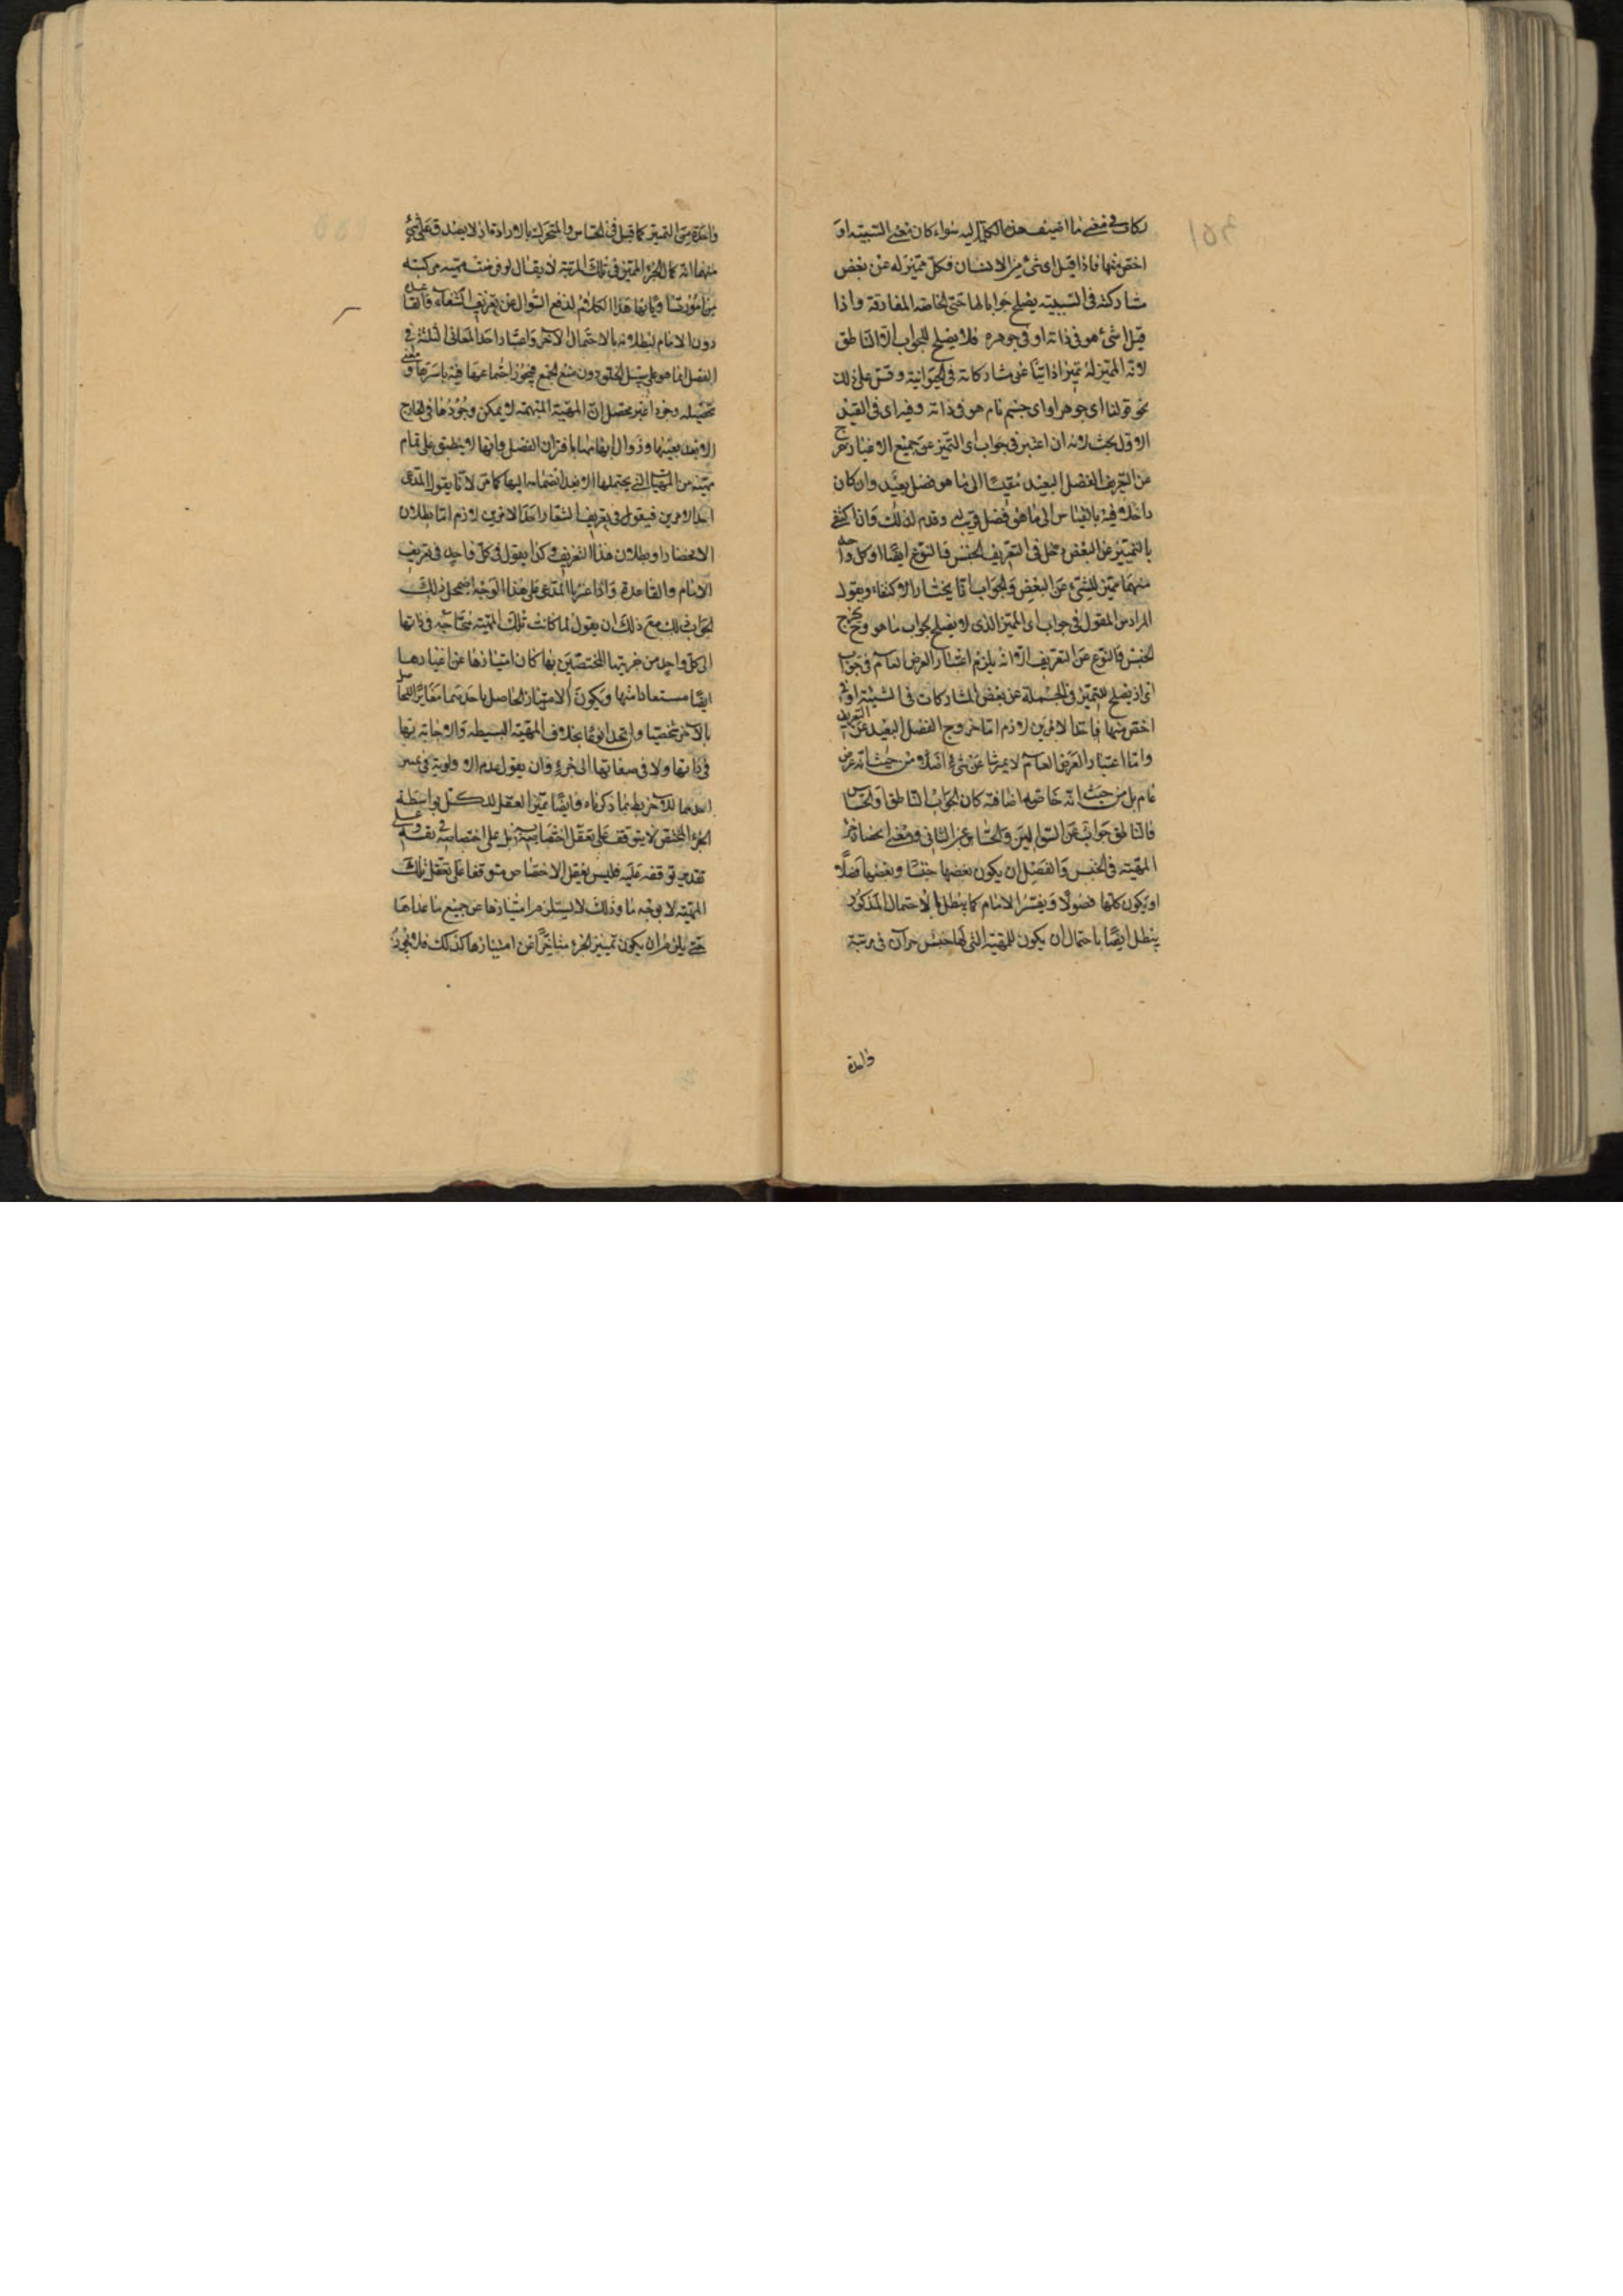 يكاو في معنى ما اضيف هذه الكلمة اليه سواء كان معنى الشيئية او
اخص منها فاذا قيل اى شئ من الانسان فكل مميز له عن بعض
مشاركته فى الشيئية يصلح جوابا لها حتى الخاصة المفارقة واذا
قيل اى شئ هو فى ذاته او فى جوهره فلا يصلح للجواب الا الناطق
لانه المميز له تميزا ذاتيا عن مشاركاته فى الحيوانية وقس على ذلك
نحو قولنا اى جوهر او اى جسم نام هو فى ذاته وفيه اى فى القيد
الاول بحث لانه ان اعتبر فى جواب اى التميز عن جميع الاغيار خرج
عن التعريف الفصل البعيد مقيسا الى ما هو فصل بعيد وان كان
داخلا فيه بالقياس الى ما هو فصل قريب له وقدم لذلك واذا اكتفى
بالتمييز عن البعض دخل فى التعريف الجنس فالنوع ايضا اذ كل واحد
منهما مميز للشئ عن البعض والجواب انا يختار الاكتفاء ويقول
المراد من المقول فى جواب اى المميز الذى لا يصلح لجواب ما هو وح يخرج
الجنس فالنوع عن التعريف الا انه يلزم اعتبار العرض العام فى جواب
اى اذ يصلح للتميز فى الجملة عن بعض المشاركات فى الشيئية او فى
اخص منها فاحد الامرين لازم اما خروج الفصل البعيد عن التعريف
واما اعتبار العرض العام لا يميز شيئا عن شئ اصلا من حيث انه عرض
عام بل من حيث انه خاصة اضافية كان الجواب الناطق او الحساس
فالناطق جواب عن السؤالين والحساس عن الثانى ومعنى انحصار جزء
المهية فى الجنس والفصل ان يكون بعضها جنسا وبعضها فصلا
او يكون كلها فصولا وتفسير الامام كما يبطل بالاحتمال المذكور
يبطل ايضا باحتمال ان يكون للمهية التى لها جنس جزآن فى مرتبة
واحدة
واحدة من التميز كما قيل فى الحساس والمتحرك بالارادة اذ لا يصدق على شئ
منهما انه كمال الجزء المميز فى تلك المرتبة لا يقال لو فرضت مهية مركبة
دون الامام لبطلانه بالاحتمال الآخر واعتبار احد المعانى الثلثة فى
الفصل انما هو على سبيل الخلو دون منع الجمع فيجوز اجتماعها فيه باسرها ومعنى
تحصيله وجودا غير محصل ان المهية المبهمة لا يمكن وجودها فى الخارج
الا بعد تعينها وزوال ابهامها باقتران الفصل وانها لا ينطبق على تمام
مهية من المهيات التى يحتملها الا بعد انضمامه اليها كما مر لانا يقول المدعى
احد الامرين فيقول فى تعريف الشفا احد الامرين لازم اما بطلان
الانحصار او بطلان هذا التعريف وكذا يقول فى كل واحد فى تعريف
الامام والقاعدة واذا غيرنا المدعى على هذا الوجه اضمحل ذلك
الجواب فلك مع ذلك ان يقول لما كانت تلك المهية محتاجة فى ذاتها
الى كل واحد من جزئيها المختصين بها كان امتيازها عن اغيارها
ايضا مستفادا منها ويكون الامتياز الحاصل باحدهما مغايرا للحاصل
بالآخر شخصيا وان اتحدا نوعا بخلاف المهية البسيطة والاحاجة بها
فى ذاتها ولا فى صفاتها الى جزء وان يقول عدم الاولوية فى تميز
احدهما للآخر يظهر بما ذكرناه وايضا تميز العقل للكل بواسطة
الجزء المختص لا يتوقف على تعقل اختصاصه به بل على اختصاصه فى نفسه وعلى
تقدير توقفه عليه فليس تعقل الاختصاص متوقفا على تعقل تلك
المهية لا بوجه ما وذلك لا يستلزم امتيازها عن جميع ما عداها
حتى يلزم ان يكون تمييز الجزء متأخرا عن امتيازها كذلك فلا يجوز